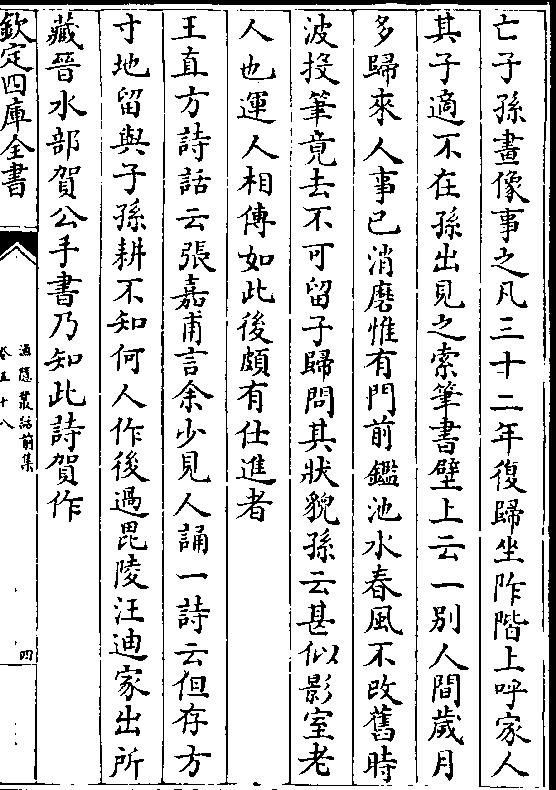 亡子孫畫像事之凡三十二年復歸坐阼階上呼家人
其子適不在孫出見之索筆書壁上云一別人間歲月
多歸來人事已消磨惟有門前鑑池水春風不改舊時
波投筆竟去不可留子歸問其狀貌孫云甚似影室老
人也運人相傳如此後頗有仕進者
王直方詩話云張嘉甫言余少見人誦一詩云但存方
寸地留與子孫耕不知何人作後過毘陵汪迪家出所
藏晉水部賀公手書乃知此詩賀作
欽定四庫全書
漁隱叢話前集
卷五十八
四